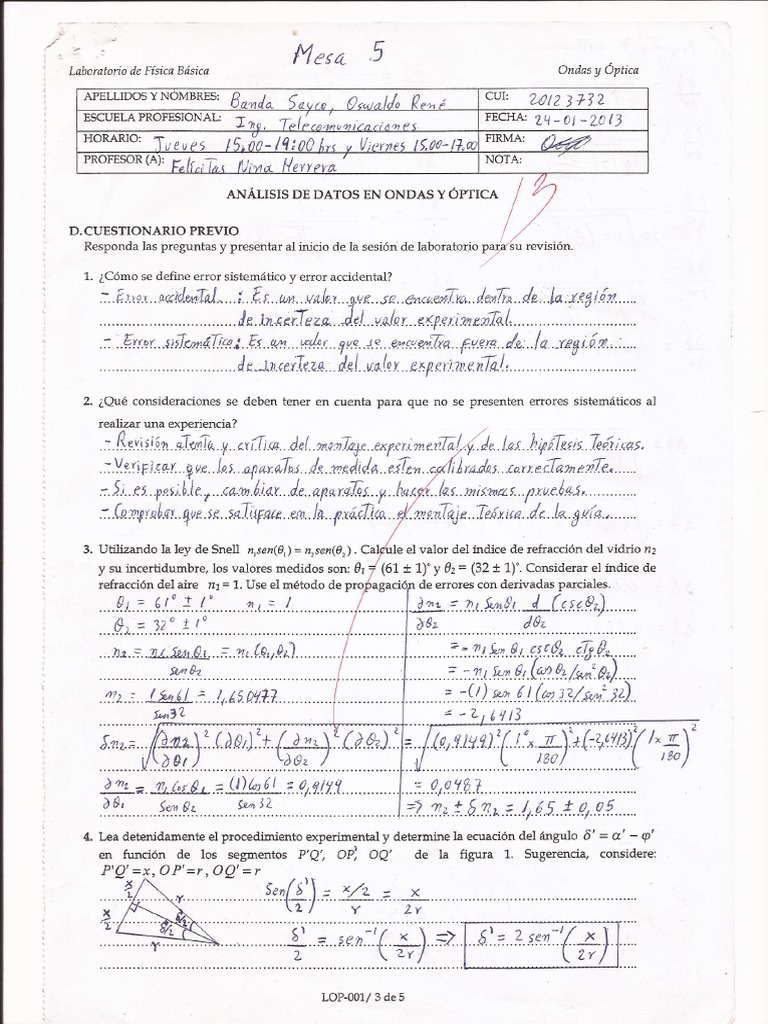 Mesa 5
Laboratorio de Física Básica Ondas y Óptica
APELLIDOS Y NOMBRES: Banda Sayco, Oswaldo René CUI: 20123732
ESCUELA PROFESIONAL: Ing. Telecomunicaciones FECHA: 24-01-2013
HORARIO: Jueves 15:00-19:00 hrs y Viernes 15:00-17:00 FIRMA:
PROFESOR (A): Felícitas Nina Herrera NOTA:
13
ANÁLISIS DE DATOS EN ONDAS Y ÓPTICA
D. CUESTIONARIO PREVIO
Responda las preguntas y presentar al inicio de la sesión de laboratorio para su revisión.
1. ¿Cómo se define error sistemático y error accidental?
- Error accidental : Es un valor que se encuentra dentro de la región
de incerteza del valor experimental.
- Error sistemático: Es un valor que se encuentra fuera de la región
de incerteza del valor experimental.
2. ¿Qué consideraciones se deben tener en cuenta para que no se presenten errores sistemáticos al
realizar una experiencia?
- Revisión atenta y crítica del montaje experimental y de las hipótesis teóricas.
- Verificar que los aparatos de medida esten calibrados correctamente.
- Si es posible, cambiar de aparatos y hacer las mismas pruebas.
- Comprobar que se satisface em la práctica el montaje Teórica de la guía.
3. Utilizando la ley de Snell n₁sen(θ₁) = n₂sen(θ₂). Calcule el valor del índice de refracción del vidrio n2
y su incertidumbre, los valores medidos son: θ1 = (61 ± 1)° y θ2 = (32 ± 1)°. Considerar el índice de
refracción del aire n2 = 1. Use el método de propagación de errores con derivadas parciales.
θ1 = 61° ± 1° n1 = 1
θ2 = 32° ± 1°
n2 = n1 senθ1 / senθ2 = n2 (θ1, θ2)
n2 = 1 sen61 / sen32 = 1,650477
δn2 = √((∂n2/∂θ1)² (∂θ1)² + (∂n2/∂θ2)² (∂θ2)²
∂n2/∂θ1 = n1 cosθ1 / senθ2 = (1) cos61 / sen32 = 0,9149
∂n2/∂θ2 = n1 senθ1 d/dθ2 (cscθ2)
= - n1 senθ1 cscθ2 ctgθ2
= - n1 senθ1 (cosθ2/sen²θ2)
= -(1) sen61 (cos32/sen²32)
= -2,6413
= √((0,9149)² (1° × π/180)² + (-2,6413)² (1 × π/180)²
= 0,0487
⇒ n2 ± δn2 = 1,65 ± 0,05
4. Lea detenidamente el procedimiento experimental y determine la ecuación del ángulo δ' = α' − φ'
en función de los segmentos P'Q', OP', OQ' de la figura 1. Sugerencia, considere:
P'Q' = x, OP' = r, OQ' = r
x/2 r
x/2 δ'/2 δ'/2
r
Sen(δ'/2) = x/2 / r = x/2r
δ'/2 = sen⁻¹(x/2r) ⇒ δ' = 2 sen⁻¹(x/2r)
LOP-001/ 3 de 5